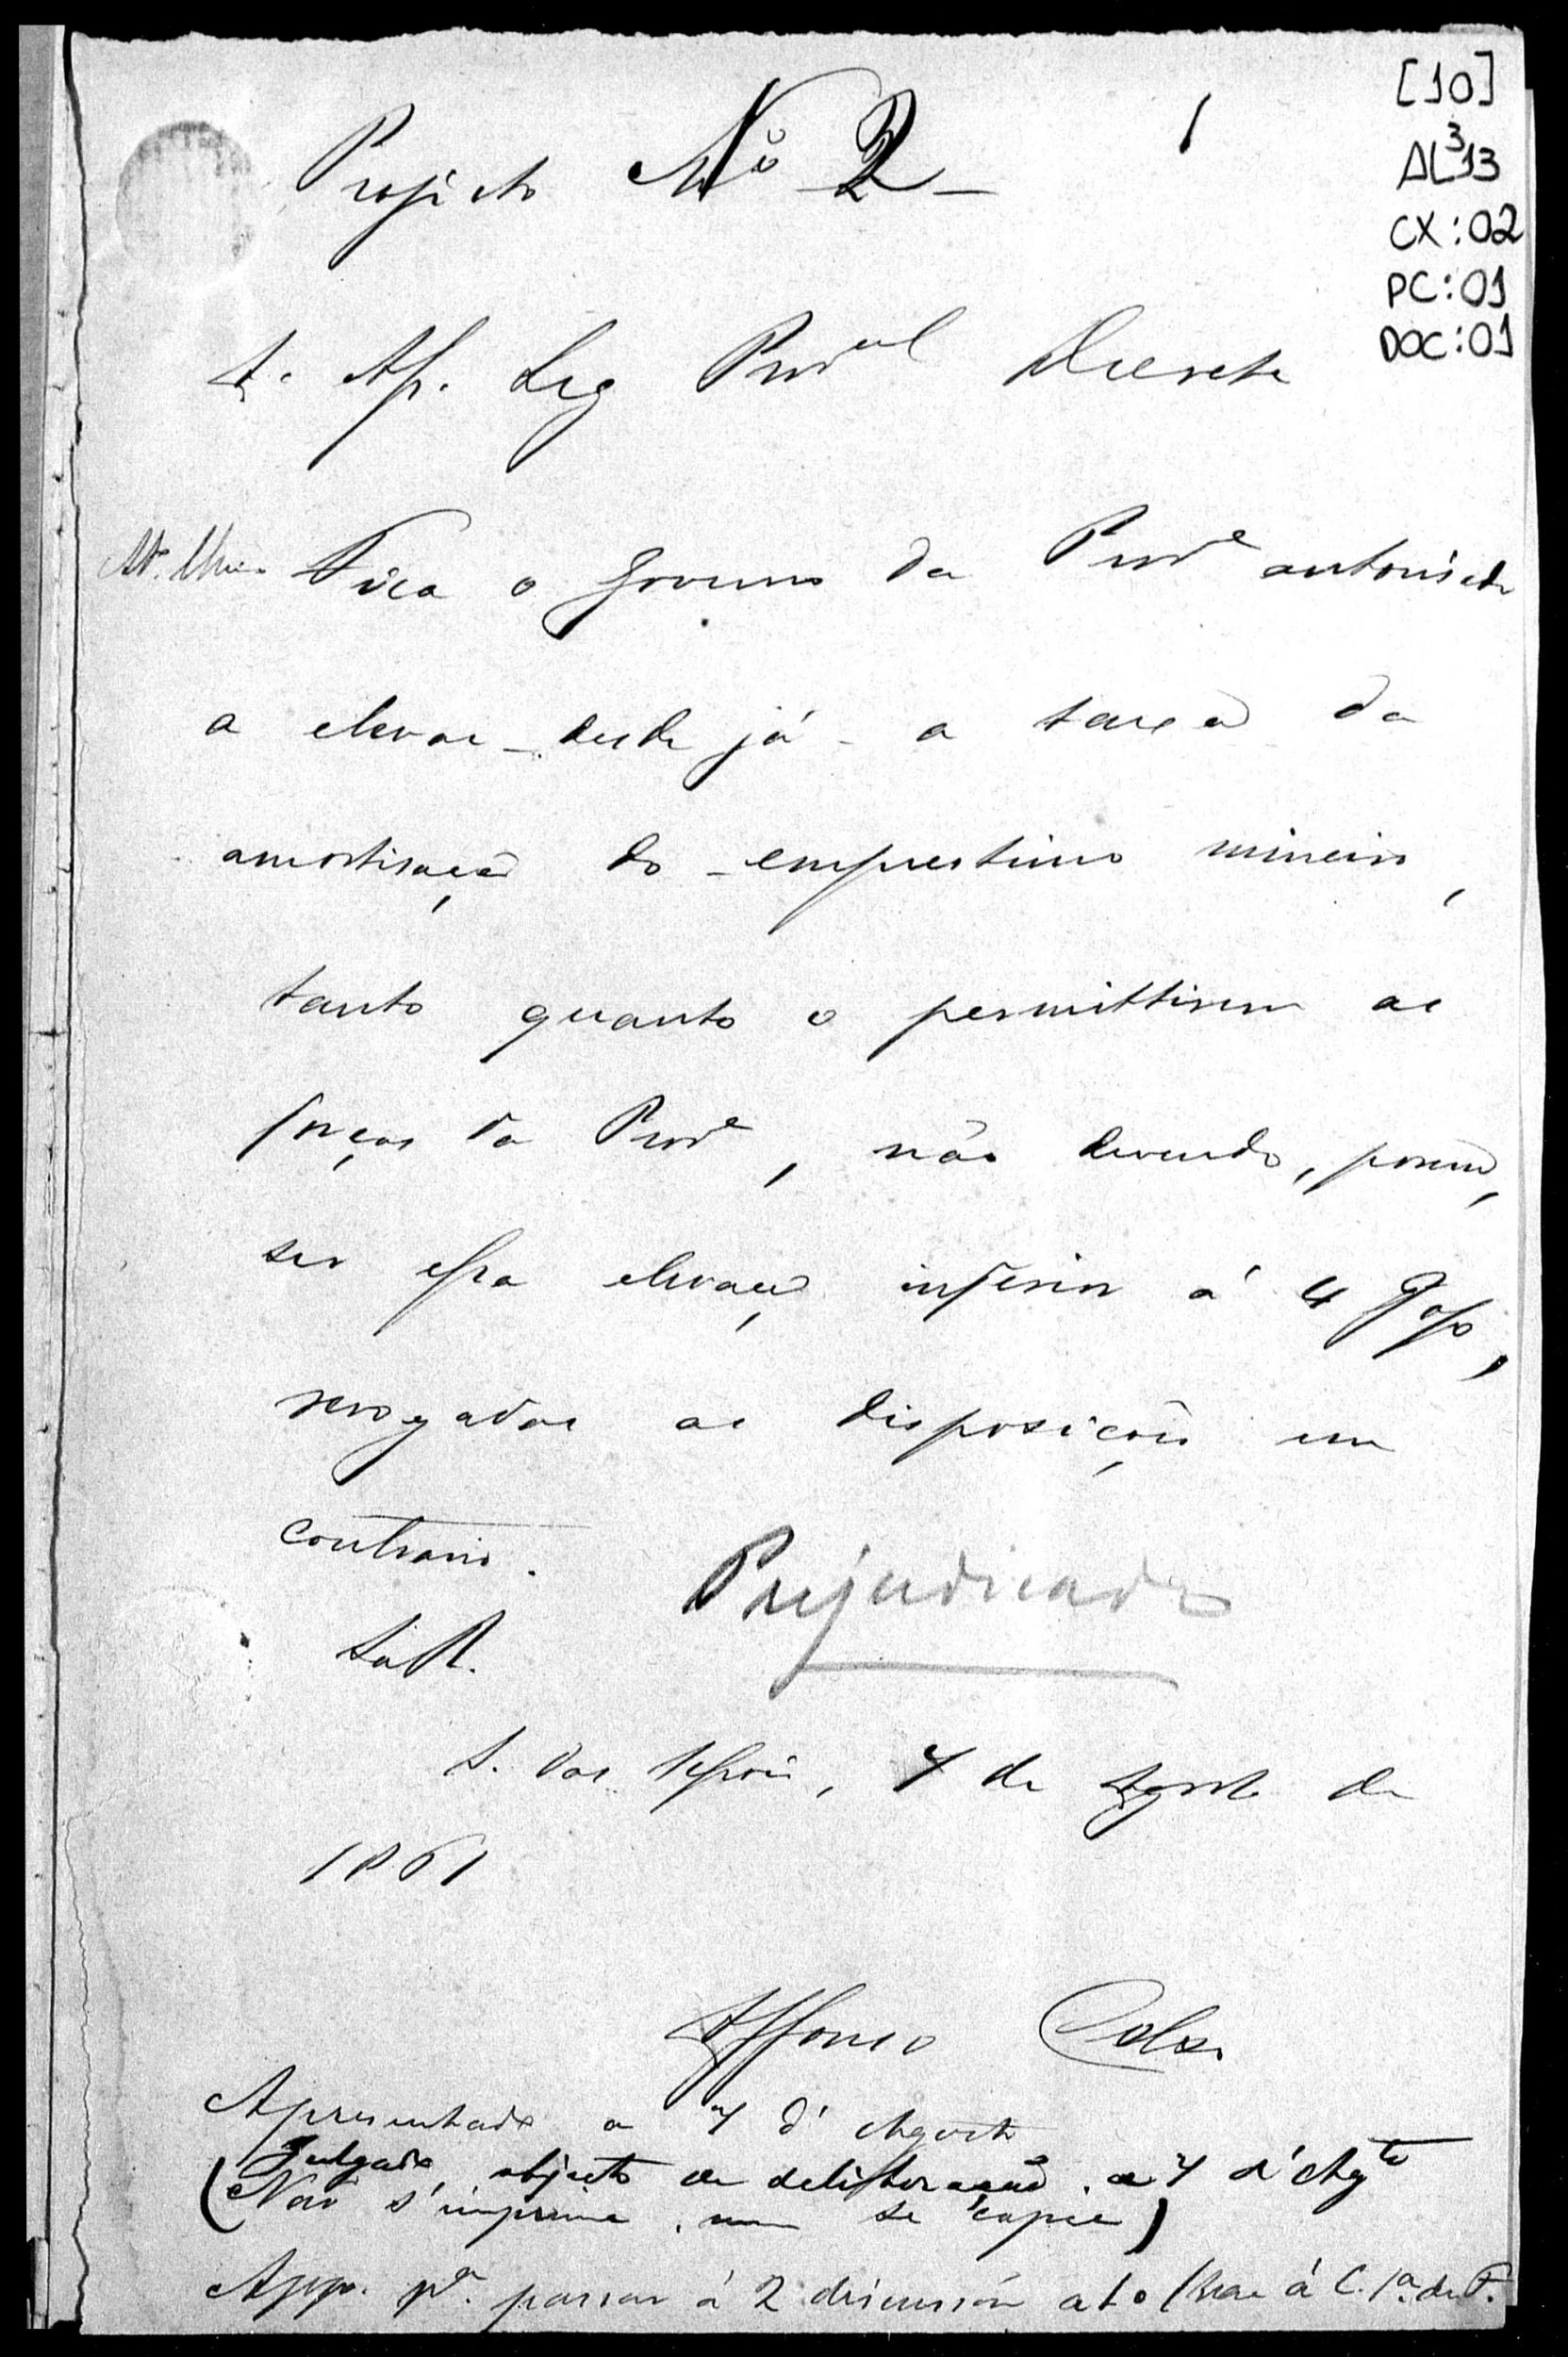 [10]
AL³13
CX:02
PC:01
DOC:01
Projecto Nº 2 -
A. Ass. Leg Prov.al Decreta
Fica o Governo da Prov.e autorisado
a elevar - desde já - a taxa da
amortisação do emprestimo mineiro,
tanto quanto o permittirem as
forças da Prov.e, não devendo, porem,
ser essa elevação inferior á 4 %,
revogadas as disposições em
contrario.
Prejudicado
S. a R.
S. das Sessões, 7 de Agosto de
1861
Affonso Celso
Apresentado a 7 d'Agosto
Julgado objecto de deliberação a 7 d'Ag.to
(Não s'imprime, nem se copie)
App. p.a passar á 2 discussão a 10 (Vae á C. 1.a de F.